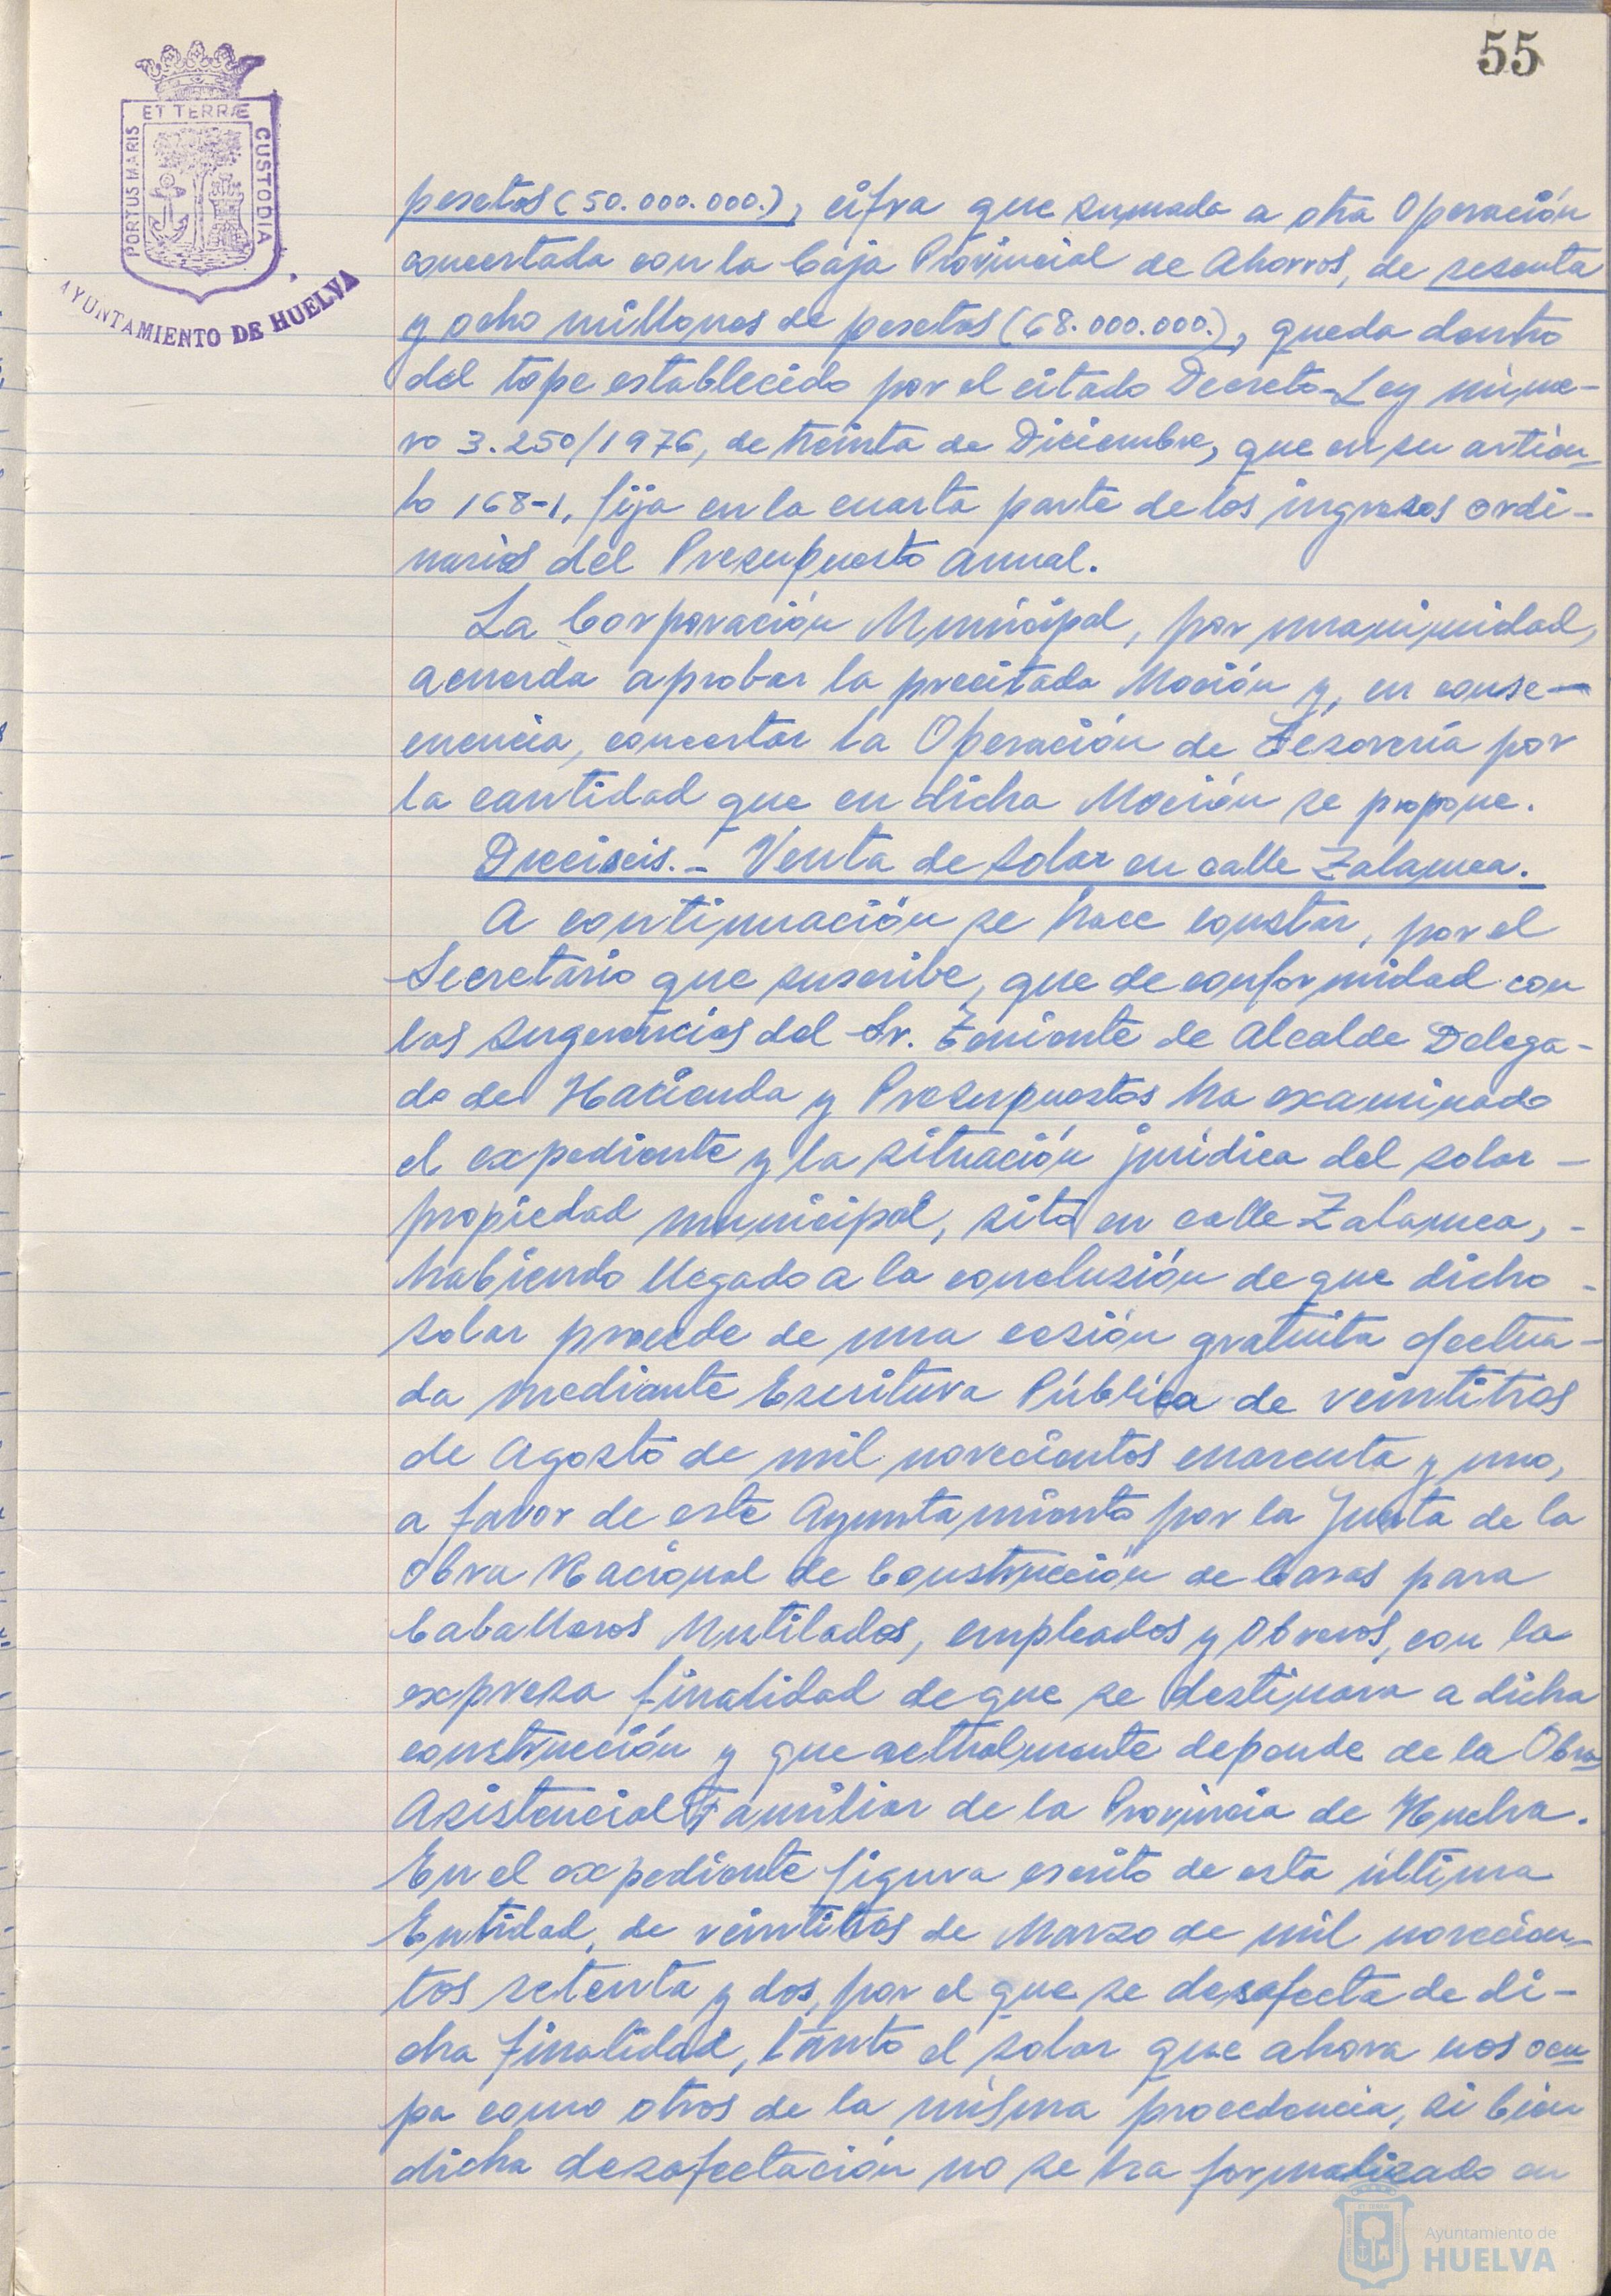 55
ET TERRÆ
PORTUS MARIS
CUSTODIA
AYUNTAMIENTO DE HUELVA
pesetas (50.000.000.), cifra que sumada a otra Operación
concertada con la Caja Provincial de Ahorros, de sesenta
y ocho millones de pesetas (68.000.000.), queda dentro
del tope establecido por el citado Decreto-Ley núme-
ro 3.250/1976, de treinta de Diciembre, que en su artícu-
lo 168-1, fija en la cuarta parte de los ingresos ordi-
narios del Presupuesto anual.
La Corporación Municipal, por unanimidad,
acuerda aprobar la precitada Moción y, en conse-
cuencia, concertar la Operación de Tesorería por
la cantidad que en dicha Moción se propone.
Dieciseis.- Venta de solar en calle Zalamea.
A continuación se hace constar, por el
Secretario que suscribe, que de conformidad con
las sugerencias del Sr. Teniente de Alcalde Delega-
do de Hacienda y Presupuestos ha examinado
el expediente y la situación jurídica del solar -
propiedad municipal, sito en calle Zalamea, -
habiendo llegado a la conclusión de que dicho -
solar procede de una cesión gratuita efectua-
da mediante Escritura Pública de veintitres
de Agosto de mil novecientos cuarenta y uno,
a favor de este Ayuntamiento por la Junta de la
Obra Nacional de Construcción de Casas para
Caballeros Mutilados, empleados y Obreros, con la
expresa finalidad de que se destinara a dicha
construcción y que actualmente depende de la Obra
Asistencial Familiar de la Provincia de Huelva.
En el expediente figura escrito de esta última
Entidad, de veintitres de Marzo de mil novecien-
tos setenta y dos, por el que se desafecta de di-
cha finalidad, tanto el solar que ahora nos ocu-
pa como otros de la misma procedencia, si bien
dicha desafectación no se ha formalizado en
Ayuntamiento de
HUELVA